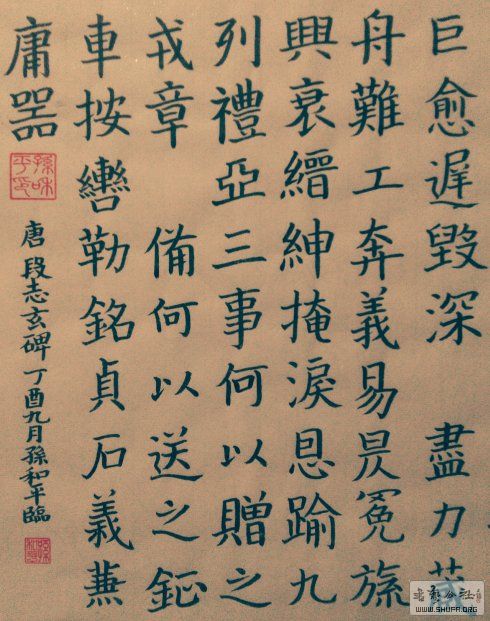 巨愈遲毀深 盡力
舟難工奔義易昃冕旒
興衰縉紳掩淚恩踰九
列禮亞三事何以贈之
戎章 備何以送之鉦
車按轡勒銘貞石義兼
庸器
唐 段志玄碑 丁酉九月孫和平臨
孫和平印
WWW.SHUFA.ORG